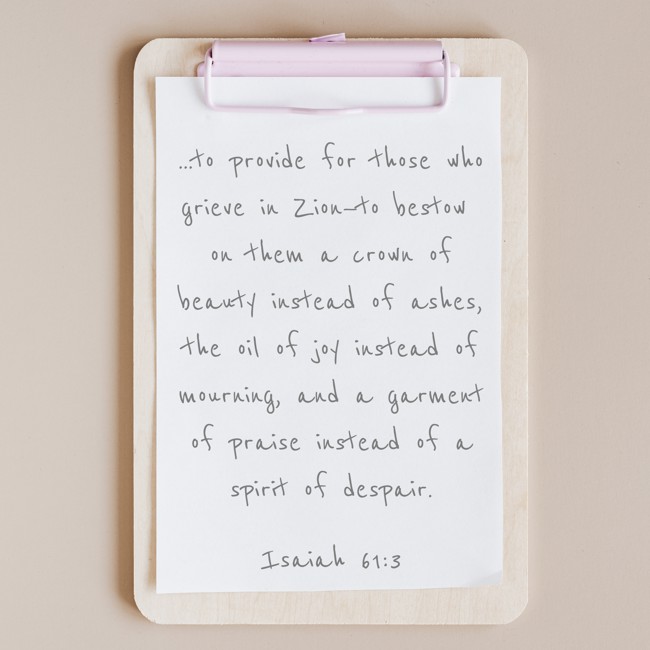 ...to provide for those who
grieve in Zion—to bestow
on them a crown of
beauty instead of ashes,
the oil of joy instead of
mourning, and a garment
of praise instead of a
spirit of despair.
Isaiah 61:3